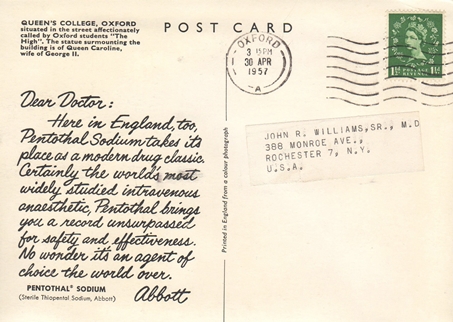 QUEEN'S COLLEGE, OXFORD
situated in the street affectionately
called by Oxford students "The
High". The statue surmounting the
building is of Queen Caroline,
wife of George II.
POST CARD
OXFORD
3 15 PM
30 APR
1957
A
1½ᴰ POSTAGE REVENUE 1½ᴰ
Dear Doctor:
Here in England, too,
Pentothal Sodium takes its
place as a modern drug classic.
Certainly the world's most
widely studied intravenous
anaesthetic, Pentothal brings
you a record unsurpassed
for safety and effectiveness.
No wonder it's an agent of
choice the world over.
Abbott
PENTOTHAL® SODIUM
(Sterile Thiopental Sodium, Abbott)
Printed in England from a colour photograph
JOHN R. WILLIAMS,SR., M.D
388 MONROE AVE.,
ROCHESTER 7, N.Y.
U.S.A.